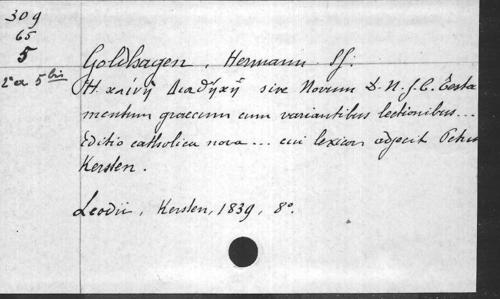 309
65
5
2ª 5 bis
Goldhagen, Hermann Sf:
Ἡ καινὴ Διαθήκη sive Novum D. N. J. C. Testa
mentum graecum cum variantibus lectionibus...
Editio catholica nova... cui lexicon adjecit Petrus
Kersten.
Leodii, Kersten, 1839, 8°.